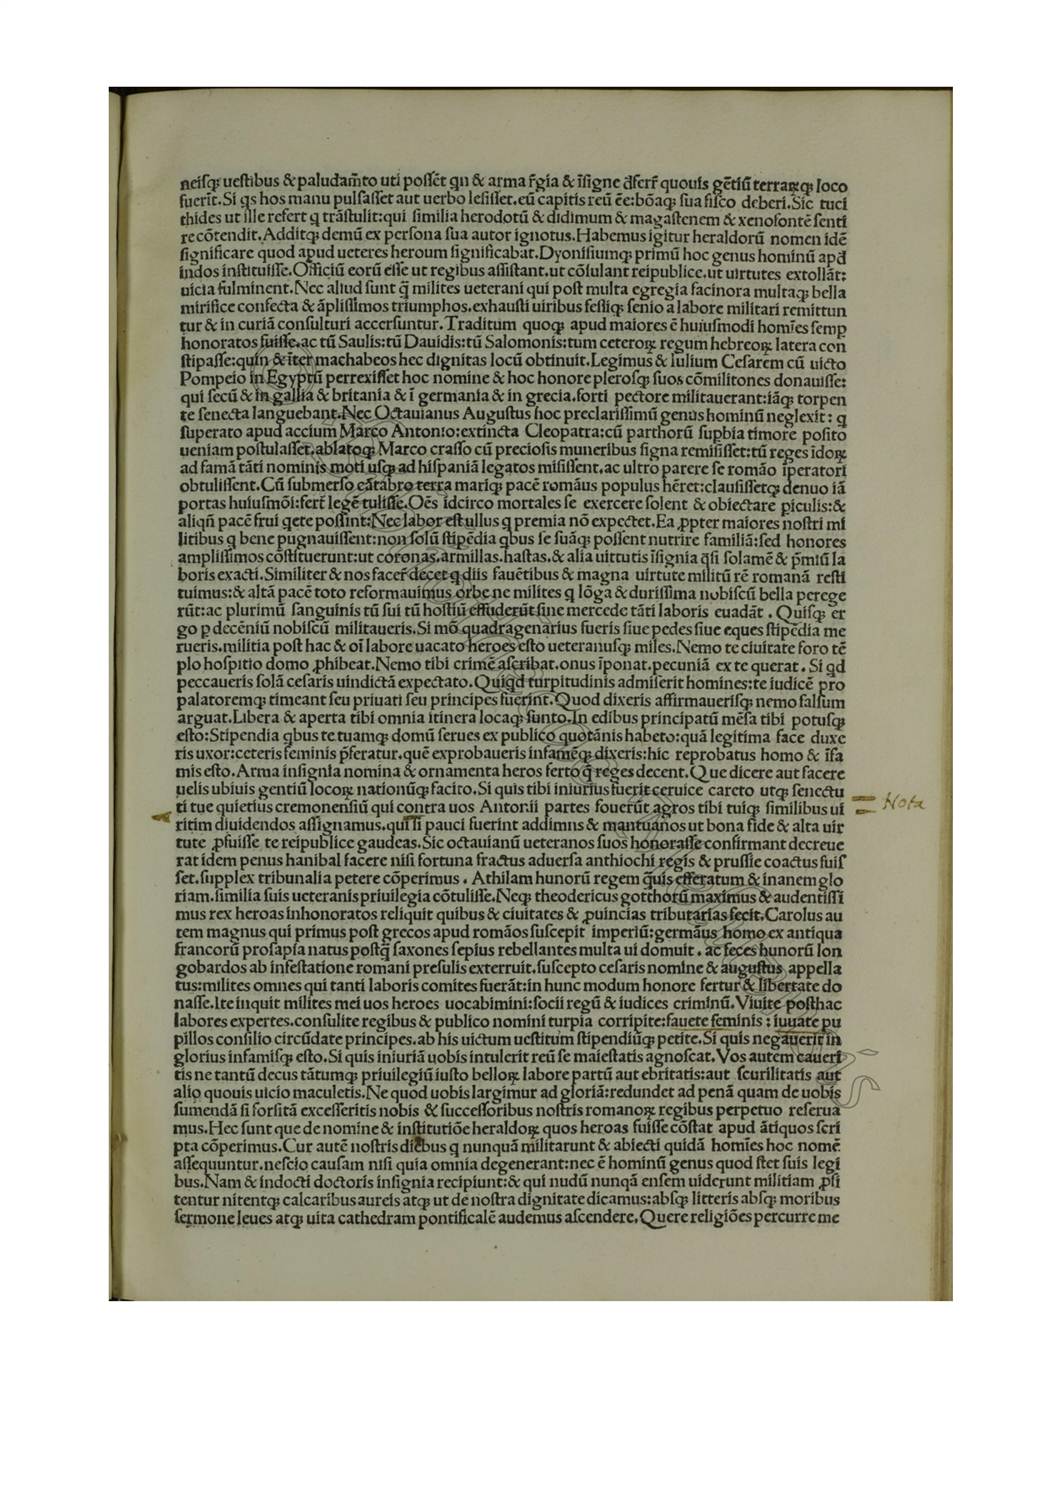 neisq; uestibus & paludam̃to uti possēt qn & arma f̃gia & īsigne d̃ferr̃ quouis gētiū terraꝝq; loco
fuerīt. Si qs hos manu pulsasset aut uerbo lesisset, eū capitis reū ēe: bōaq; sua fisco deberi. Sic tuci
thides ut ille refert q trāstulit: qui similia herodotū & didimum & magastenem & xenofontē senti
re cōtendit. Additq; demū ex persona sua autor ignotus. Habemus igitur heraldorū nomen idē
significare quod apud ueteres heroum significabat. Dyonisiumq; primū hoc genus hominū apd
indos instituisse. Officiū eorū esse ut regibus assistant, ut cōsulant reipublice, ut uirtutes extollāt:
uicia fulminent. Nec aliud sunt q̃ milites ueterani qui post multa egregia facinora multaq; bella
mirifice confecta & āplissimos triumphos, exhausti uiribus fessiq; senio a labore militari remittun
tur & in curiā consulturi accersuntur. Traditum quoq; apud maiores ē huiusmodi homīes semp
honoratos fuisse, ac tū Saulis: tū Dauidis: tū Salomonis: tum ceteroꝝ regum hebreoꝝ latera con
stipasse: quin & īter machabeos hec dignitas locū obtinuit. Legimus & Iulium Cesarem cū uicto
Pompeio in Egyptū perrexisset hoc nomine & hoc honore plerosq; suos cōmilitones donauisse:
qui secū & in gallia & britania & ī germania & in grecia, forti pectore militauerant: iāq; torpen
te senecta languebant. Nec Octauianus Augustus hoc preclarissimū genus hominū neglexit: q
superato apud accium Marco Antonio: extincta Cleopatra: cū parthorū supbia timore posito
ueniam postulasset, ablatoq; Marco crasso cū preciosis muneribus signa remisisset: tū reges īdoꝝ
ad famā tāti nominis moti usq; ad hispaniā legatos misissent, ac ultro parere se romāo īperatori
obtulissent. Cū submerso cātabro terra mariq; pacē romāus populus hēret: clausissetq; denuo iā
portas huiusmōi: ferr̃ legē tulisse. Oēs idcirco mortales se exercere solent & obiectare piculis: &
aliqñ pacē frui qete possint: Nec labor est ullus q premia nō expectet. Ea ꝓpter maiores nostri mi
litibus q bene pugnauissent: non solū stipēdia qbus se suāq; possent nutrire familiā: sed honores
amplissimos cōstituerunt: ut coronas, armillas, hastas, & alia uirtutis īsignia q̃si solamē & p̄miū la
boris exacti. Similiter & nos facer̃ decet q diis fauētibus & magna uirtute militū rē romanā resti
tuimus: & altā pacē toto reformauimus orbe ne milites q lōga & durissima nobiscū bella perege
rūt: ac plurimū sanguinis tū sui tū hostiū effuderūt sine mercede tāti laboris euadāt. Quisq; er
go p decēniū nobiscū militaueris. Si mō quadragenarius fueris siue pedes siue eques stipēdia me
rueris, militia post hac & oī labore uacato heroes esto ueteranusq; miles. Nemo te ciuitate foro tē
plo hospitio domo ꝓhibeat. Nemo tibi crimē ascribat, onus īponat, pecuniā ex te querat. Si qd
peccaueris solā cesaris uindictā expectato. Quiqd turpitudinis admiserit homines: te iudicē pro
palatoremq; timeant seu priuati seu principes fuerint. Quod dixeris affirmauerisq; nemo falsum
arguat. Libera & aperta tibi omnia itinera locaq; sunto. In edibus principatū mēsa tibi potusq;
esto: Stipendia qbus te tuamq; domū serues ex publico quotānis habeto: quā legitima face duxe
ris uxor: ceteris feminis p̄feratur. quē exprobaueris infamēq; dixeris: hic reprobatus homo & īfa
mis esto. Arma insignia nomina & ornamenta heros ferto q̃ reges decent. Que dicere aut facere
uelis ubiuis gentiū locoꝝ nationūq; facito. Si quis tibi iniurius fuerit ceruice careto utq; senectu
ti tue quietius cremonensiū qui contra uos Antonii partes fouerūt agros tibi tuiq; similibus ui
ritim diuidendos assignamus, qui si pauci fuerint addimns & mantuanos ut bona fide & alta uir
tute ꝓfuisse te reipublice gaudeas. Sic octauianū ueteranos suos honorasse confirmant decreue
rat idem penus hanibal facere nisi fortuna fractus aduersa anthiochi regis & prussie coactus fuis
set, supplex tribunalia petere cōperimus. Athilam hunorū regem q̃uis efferatum & inanem glo
riam, similia suis ueteranis priuilegia cōtulisse. Neq; theodericus gotthorū maximus & audentissi
mus rex heroas inhonoratos reliquit quibus & ciuitates & ꝓuincias tributarias fecit. Carolus au
tem magnus qui primus post grecos apud romāos suscepit imperiū: germāus homo ex antiqua
francorū prosapia natus postq̃ saxones sepius rebellantes multa ui domuit, ac feces hunorū lon
gobardos ab infestatione romani presulis exterruit, suscepto cesaris nomine & augustus appella
tus: milites omnes qui tanti laboris comites fuerāt: in hunc modum honore fertur & libertate do
nasse. Ite inquit milites mei uos heroes uocabimini: socii regū & iudices criminū. Viuite posthac
labores expertes, consulite regibus & publico nomini turpia corripite: fauete feminis: iuuate pu
pillos consilio circūdate principes, ab his uictum uestitum stipendiūq; petite. Si quis negauerit in
glorius infamisq; esto. Si quis iniuriā uobis intulerit reū se maiestatis agnoscat. Vos autem caueri
tis ne tantū decus tātumq; priuilegiū iusto belloꝝ labore partū aut ebritatis: aut scurilitatis aut
alio quouis uicio maculetis. Ne quod uobis largimur ad gloriā: redundet ad penā quam de uobis
sumendā si forsitā excesseritis nobis & successoribus nostris romanoꝝ regibus perpetuo reserua
mus. Hec sunt que de nomine & institutiōe heraldoꝝ quos heroas fuisse cōstat apud ātiquos scri
pta cōperimus. Cur autē nostris diebus q nunquā militarunt & abiecti quidā homīes hoc nomē
assequuntur, nescio causam nisi quia omnia degenerant: nec ē hominū genus quod stet suis legi
bus. Nam & indocti doctoris insignia recipiunt: & qui nudū nunqā ensem uiderunt militiam ꝓfi
tentur nitentq; calcaribus aureis atq; ut de nostra dignitate dicamus: absq; litteris absq; moribus
sermone leues atq; uita cathedram pontificalē audemus ascendere. Quere religiōes percurre me
Nota